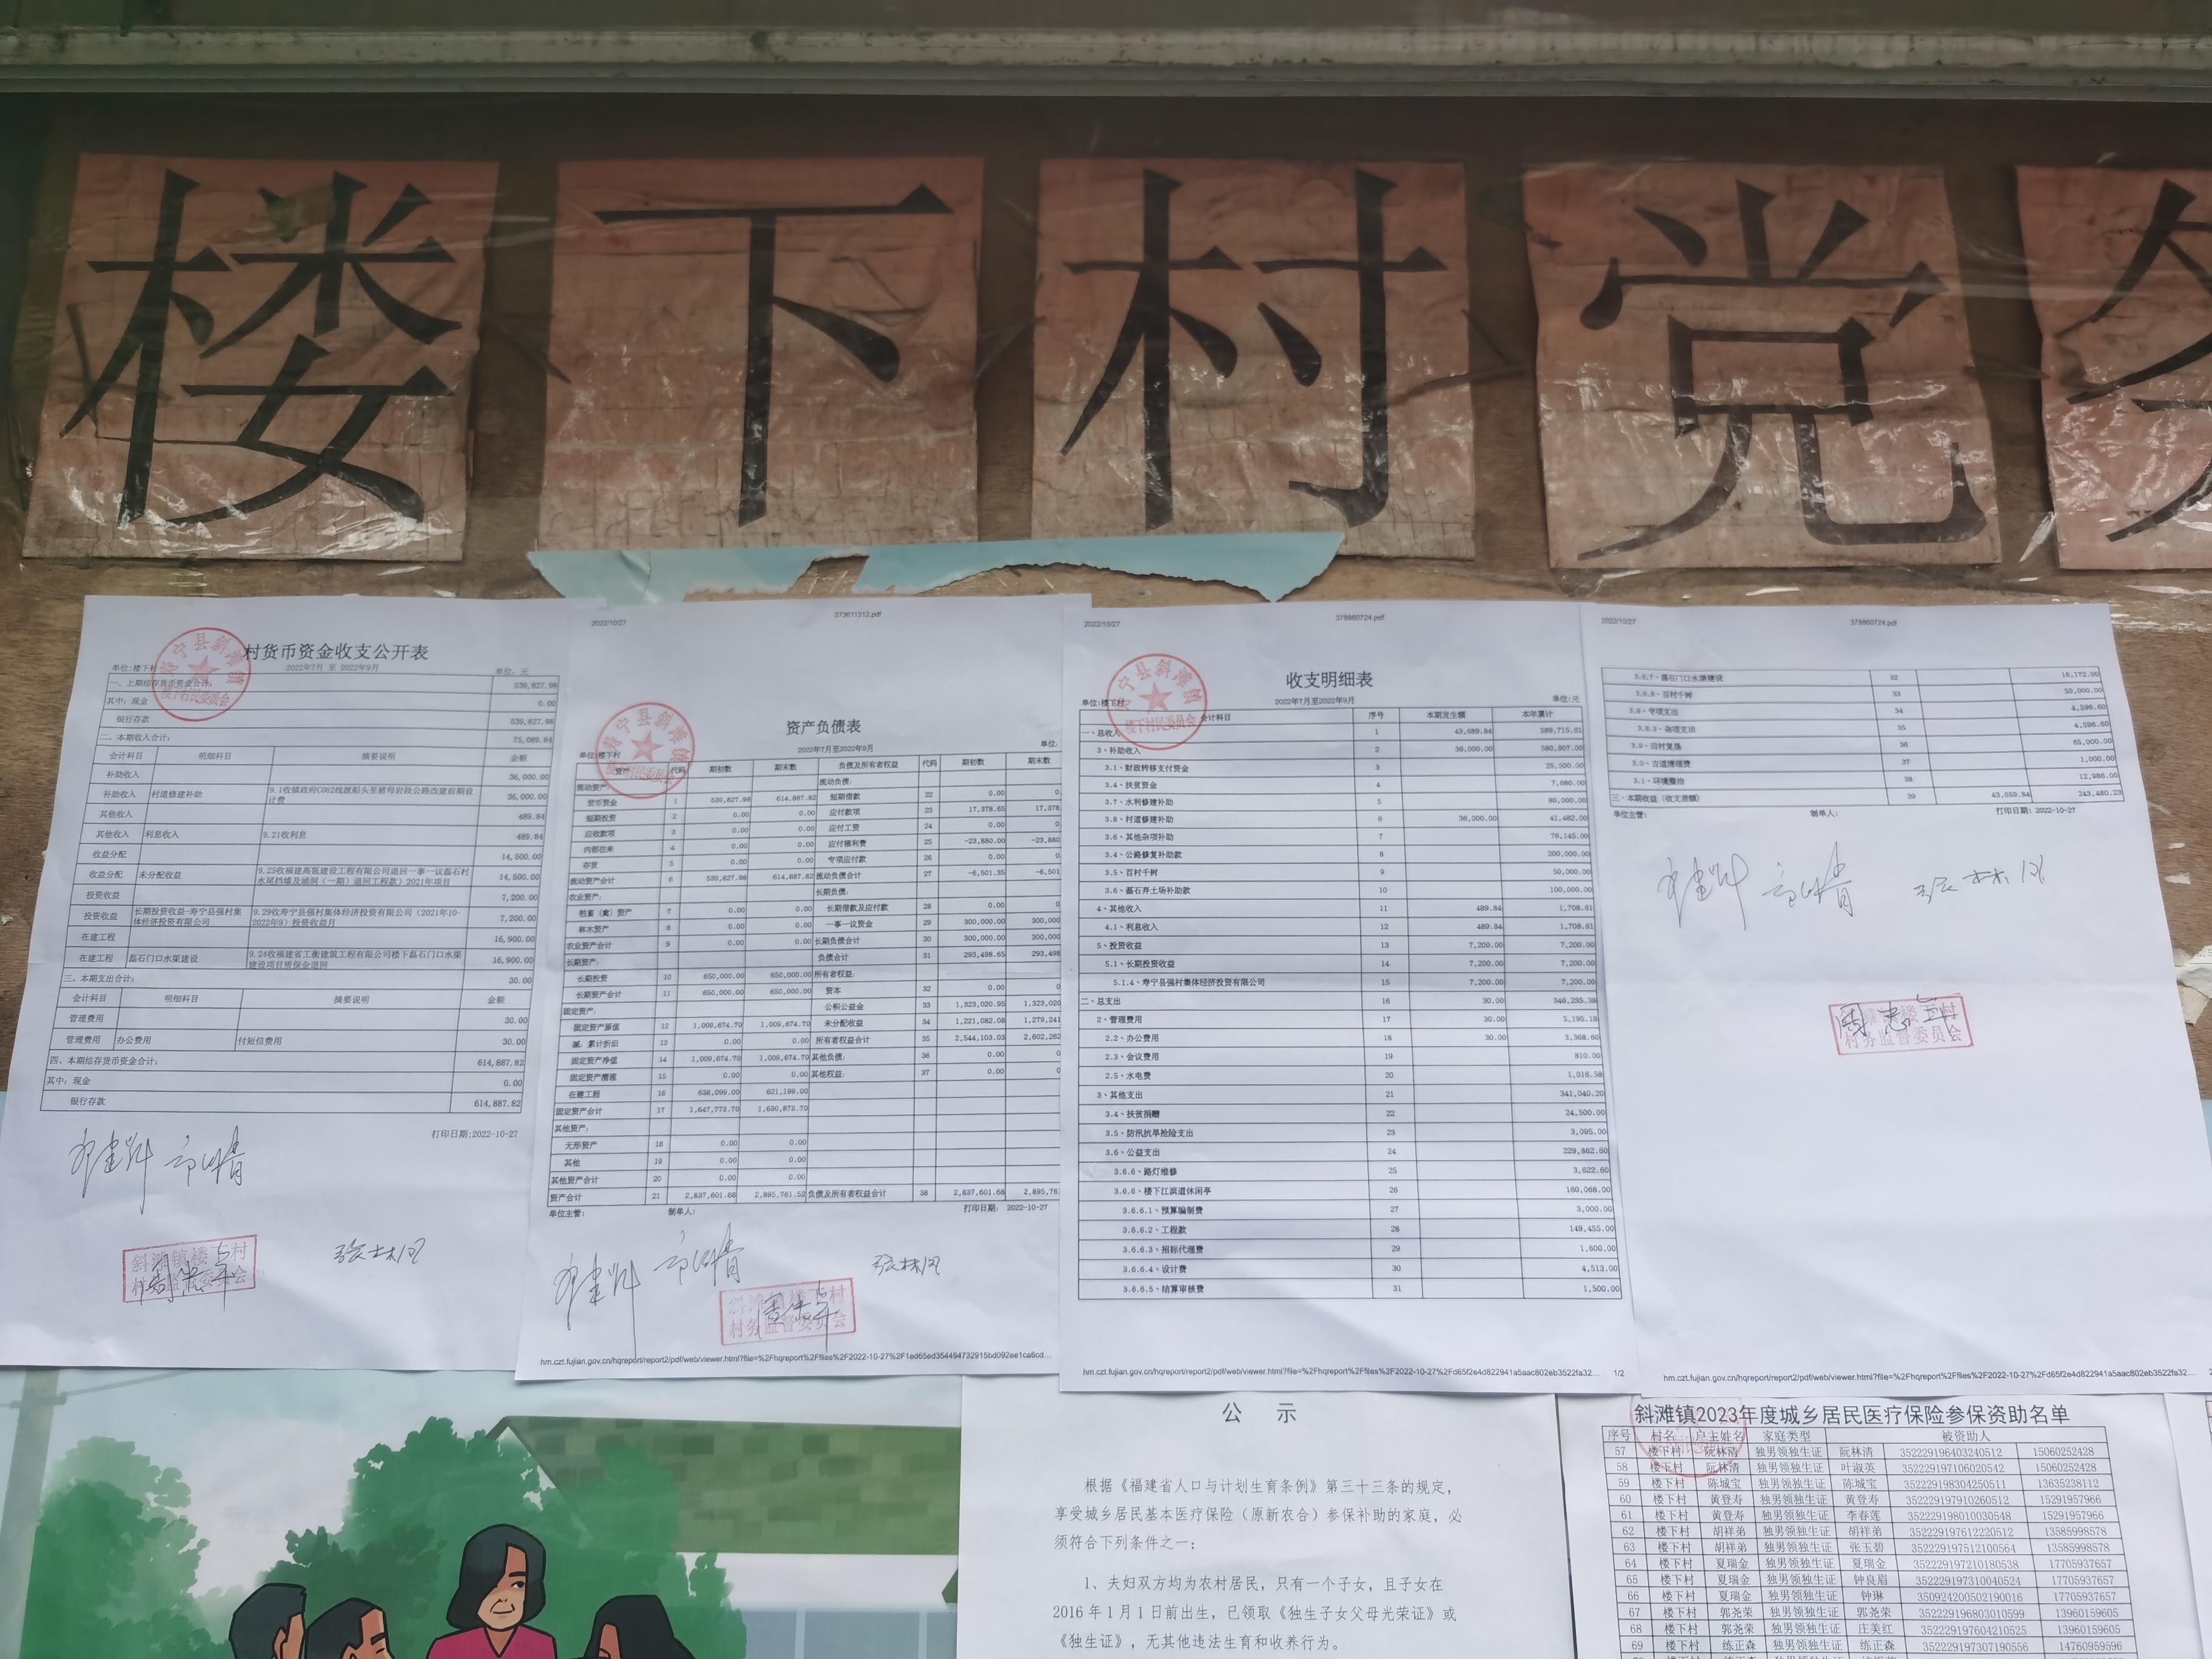 楼下村党务
村货币资金收支公开表
2022年7月 至 2022年9月
单位:楼下村 单位:元
一、上期结存货币资金合计: 539,827.98
其中:现金 0.00
银行存款 539,827.98
二、本期收入合计: 75,089.84
会计科目 明细科目 摘要说明 金额
补助收入 36,000.00
补助收入 村道修建补助 9.1收镇政府C082线渡船头至猪母岩段公路改建前期设计费 36,000.00
其他收入 489.84
其他收入 利息收入 9.21收利息 489.84
收益分配 14,500.00
收益分配 未分配收益 9.25收福建高瓴建设工程有限公司退回一事一议磊石村水尾挡墙及涵洞(一期)退回工程款)2021年项目 14,500.00
投资收益 7,200.00
投资收益 长期投资收益-寿宁县强村集体经济投资有限公司 9.29收寿宁县强村集体经济投资有限公司(2021年10-2022年9)投资收益月 7,200.00
在建工程 16,900.00
在建工程 磊石门口水渠建设 9.24收福建省工衡建筑工程有限公司楼下磊石门口水渠建设项目质保金退回 16,900.00
三、本期支出合计: 30.00
会计科目 明细科目 摘要说明 金额
管理费用 30.00
管理费用 办公费用 付短信费用 30.00
四、本期结存货币资金合计: 614,887.82
其中:现金 0.00
银行存款 614,887.82
打印日期:2022-10-27
斜滩镇楼下村
村务监督委员会
2022/10/27 373611312.pdf
资产负债表
2022年7月至2022年9月
单位:楼下村 单位:
资产 代码 期初数 期末数 负债及所有者权益 代码 期初数 期末数
流动资产: 流动负债:
货币资金 1 539,827.98 614,887.82 短期借款 22 0.00 0.
短期投资 2 0.00 0.00 应付款项 23 17,378.65 17,378
应收款项 3 0.00 0.00 应付工资 24 0.00 0.
内部往来 4 0.00 0.00 应付福利费 25 -23,880.00 -23,880
存货 5 0.00 0.00 专项应付款 26 0.00 0.
流动资产合计 6 539,827.98 614,887.82 流动负债合计 27 -6,501.35 -6,501
农业资产: 长期负债:
牲畜(禽)资产 7 0.00 0.00 长期借款及应付款 28 0.00 0.
林木资产 8 0.00 0.00 一事一议资金 29 300,000.00 300,000
农业资产合计 9 0.00 0.00 长期负债合计 30 300,000.00 300,000
长期资产: 负债合计 31 293,498.65 293,498
长期投资 10 650,000.00 650,000.00 所有者权益:
长期资产合计 11 650,000.00 650,000.00 资本 32 0.00 0
固定资产: 公积公益金 33 1,323,020.95 1,323,020
固定资产原值 12 1,009,674.70 1,009,674.70 未分配收益 34 1,221,082.08 1,279,241
减:累计折旧 13 0.00 0.00 所有者权益合计 35 2,544,103.03 2,602,262
固定资产净值 14 1,009,674.70 1,009,674.70 其他负债: 36 0.00 0
固定资产清理 15 0.00 0.00 其他权益: 37 0.00 0
在建工程 16 638,099.00 621,199.00
固定资产合计 17 1,647,773.70 1,630,873.70
其他资产:
无形资产 18 0.00 0.00
其他 19 0.00 0.00
其他资产合计 20 0.00 0.00
资产合计 21 2,837,601.68 2,895,761.52 负债及所有者权益合计 38 2,837,601.68 2,895,761
单位主管: 制单人: 打印日期: 2022-10-27
斜滩镇楼下村
村务监督委员会
hm.czt.fujian.gov.cn/hqreport/report2/pdf/web/viewer.html?file=%2Fhqreport%2Ffiles%2F2022-10-27%2F1ed65ed354494732915bd092ee1ca6cd...
2022/10/27 378860724.pdf
收支明细表
单位:楼下村 2022年7月至2022年9月 单位:元
会计科目 序号 本期发生额 本年累计
一、总收入 1 43,689.84 589,715.61
3、补助收入 2 36,000.00 580,807.00
3.1、财政转移支付资金 3 25,500.00
3.4、扶贫资金 4 7,680.00
3.7、水利修建补助 5 80,000.00
3.8、村道修建补助 6 36,000.00 41,482.00
3.6、其他杂项补助 7 76,145.00
3.4、公路修复补助款 8 200,000.00
3.5、百村千树 9 50,000.00
3.6、磊石弃土场补助款 10 100,000.00
4、其他收入 11 489.84 1,708.61
4.1、利息收入 12 489.84 1,708.61
5、投资收益 13 7,200.00 7,200.00
5.1、长期投资收益 14 7,200.00 7,200.00
5.1.4、寿宁县强村集体经济投资有限公司 15 7,200.00 7,200.00
二、总支出 16 30.00 346,235.38
2、管理费用 17 30.00 5,195.18
2.2、办公费用 18 30.00 3,368.60
2.3、会议费用 19 810.00
2.5、水电费 20 1,016.58
3、其他支出 21 341,040.20
3.4、扶贫捐赠 22 24,500.00
3.5、防汛抗旱抢险支出 23 3,095.00
3.6、公益支出 24 229,862.60
3.6.6、路灯维修 25 3,622.60
3.6.6、楼下江滨道休闲亭 26 160,068.00
3.6.6.1、预算编制费 27 3,000.00
3.6.6.2、工程款 28 149,455.00
3.6.6.3、招标代理费 29 1,600.00
3.6.6.4、设计费 30 4,513.00
3.6.6.5、结算审核费 31 1,500.00
hm.czt.fujian.gov.cn/hqreport/report2/pdf/web/viewer.html?file=%2Fhqreport%2Ffiles%2F2022-10-27%2Fd65f2e4d822941a5aac802eb3522fa32... 1/2
2022/10/27 378860724.pdf
3.6.7、磊石门口水渠建设 32 16,172.00
3.6.8、百村千树 33 50,000.00
3.8、专项支出 34 4,596.60
3.8.3、杂项支出 35 4,596.60
3.9、旧村复垦 36 65,000.00
3.0、古道清理费 37 1,000.00
3.1、环境整治 38 12,986.00
三、本期收益(收支差额) 39 43,659.84 243,480.23
单位主管: 制单人: 打印日期: 2022-10-27
斜滩镇楼下村
村务监督委员会
hm.czt.fujian.gov.cn/hqreport/report2/pdf/web/viewer.html?file=%2Fhqreport%2Ffiles%2F2022-10-27%2Fd65f2e4d822941a5aac802eb3522fa32...
公 示
根据《福建省人口与计划生育条例》第三十三条的规定,
享受城乡居民基本医疗保险(原新农合)参保补助的家庭,必
须符合下列条件之一:
1、夫妇双方均为农村居民,只有一个子女,且子女在
2016年1月1日前出生,已领取《独生子女父母光荣证》或
《独生证》,无其他违法生育和收养行为。
斜滩镇2023年度城乡居民医疗保险参保资助名单
序号 村名 户主姓名 家庭类型 被资助人
57 楼下村 阮林清 独男领独生证 阮林清 352229196403240512 15060252428
58 楼下村 阮林清 独男领独生证 叶淑英 352229197106020542 15060252428
59 楼下村 陈城宝 独男领独生证 陈城宝 352229198304250511 13635238112
60 楼下村 黄登寿 独男领独生证 黄登寿 352229197910260512 15291957966
61 楼下村 黄登寿 独男领独生证 李春莲 352229198010030548 15291957966
62 楼下村 胡祥弟 独男领独生证 胡祥弟 352229197612220512 13585998578
63 楼下村 胡祥弟 独男领独生证 张玉碧 352229197512100564 13585998578
64 楼下村 夏瑞金 独男领独生证 夏瑞金 352229197210180538 17705937657
65 楼下村 夏瑞金 独男领独生证 钟良眉 352229197310040524 17705937657
66 楼下村 夏瑞金 独男领独生证 钟琳 350924200502190016 17705937657
67 楼下村 郭尧荣 独男领独生证 郭尧荣 352229196803010599 13960159605
68 楼下村 郭尧荣 独男领独生证 庄美红 352229197604210525 13960159605
69 楼下村 练正森 独男领独生证 练正森 352229197307190556 14760959596